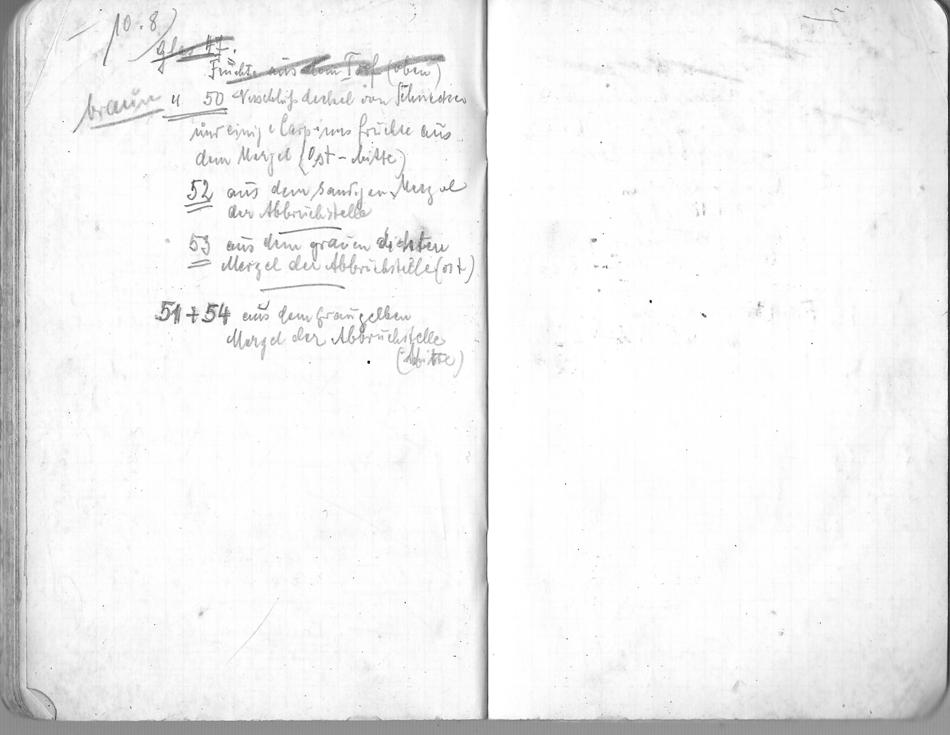 10.8)
Glas 47.
Früchte aus dem Torf (oben)
braun " 50 Verschlußdeckel von Schnecken
und einige Carpinus früchte aus
dem Mergel (Ost-Mitte)
52 aus dem sandigen Mergel
der Abbruchstelle
53 aus dem grauen dichten
Mergel der Abbruchstelle (ost)
51 + 54 aus dem graugelben
Mergel der Abbruchstelle
(Mitte)